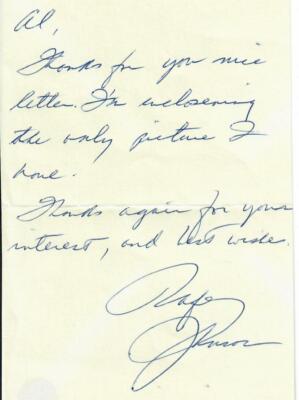 Al,
Thanks for you nice
letter. I'm enclosening
the only picture I
have.
Thanks again for your
interest, and best wishes.
Rafer
Johnson